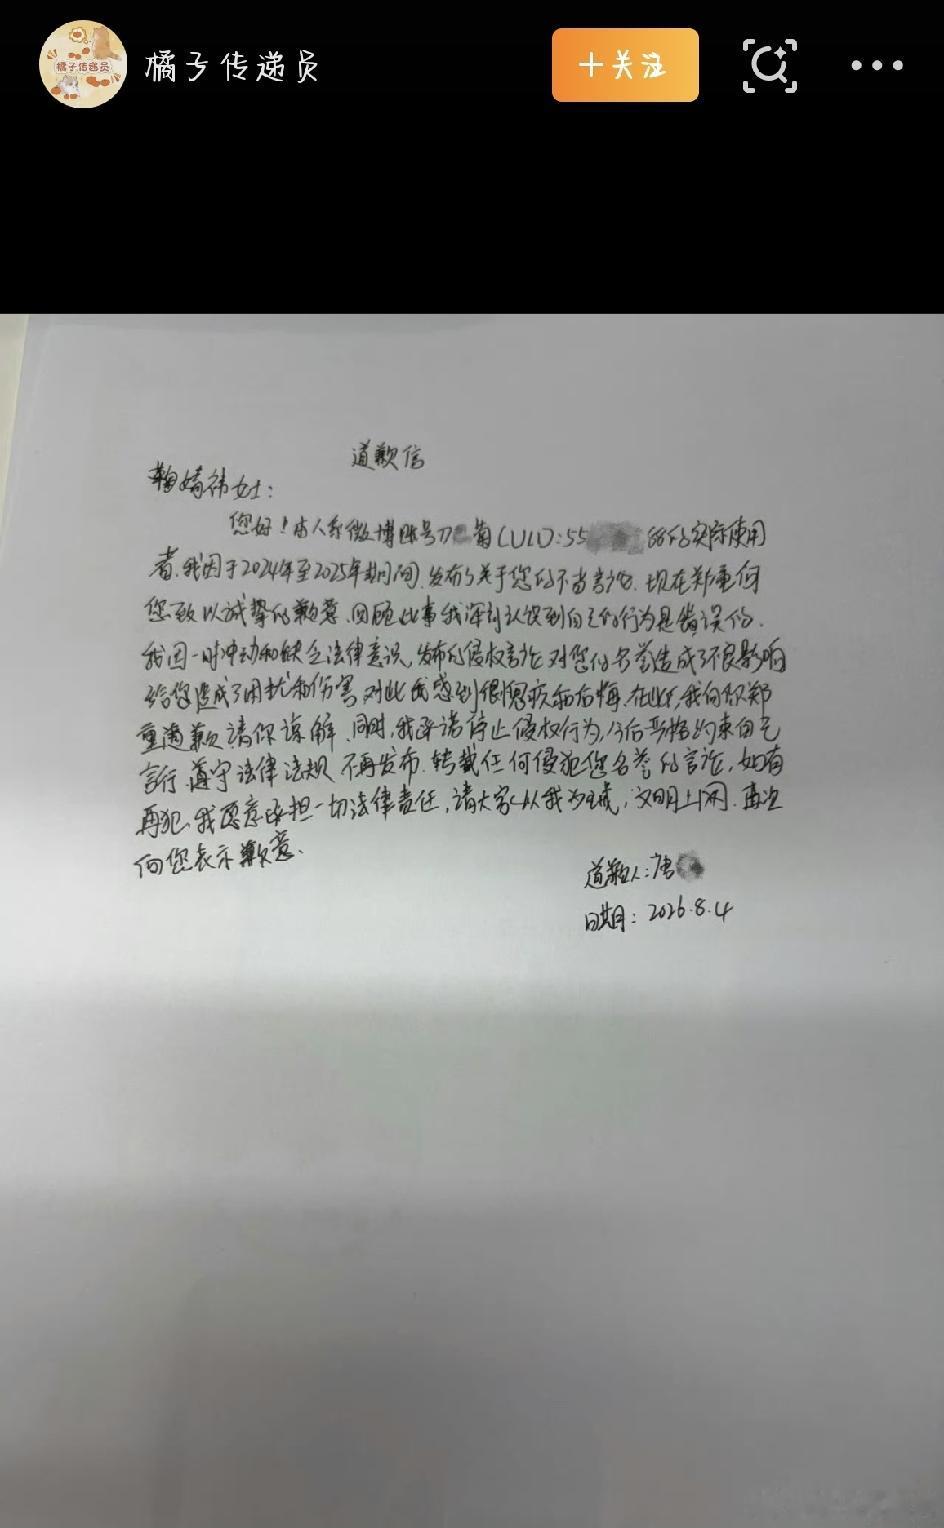 橘子传递员
橘子传递员
+关注
道歉信
鞠婧祎女士：
您好！本人系微博账号刀 菊(UID：55 88的实际使用
者，我因于2024年至2025年期间，发布了关于您的不当言论，现在郑重向
您致以诚挚的歉意，回顾此事我深刻认识到自己的行为是错误的。
我因一时冲动和缺乏法律意识，发布的侵权言论对您的名誉造成了不良影响
给您造成了困扰和伤害，对此我感到很愧疚和后悔，在此，我向您郑
重道歉请你谅解，同时，我承诺停止侵权行为，今后严格约束自己
言行，遵守法律法规，不再发布、转载任何侵犯您名誉的言论，如有
再犯，我愿意承担一切法律责任，请大家以我为戒，文明上网，再次
向您表示歉意。
道歉人：唐
日期：2026.8.4